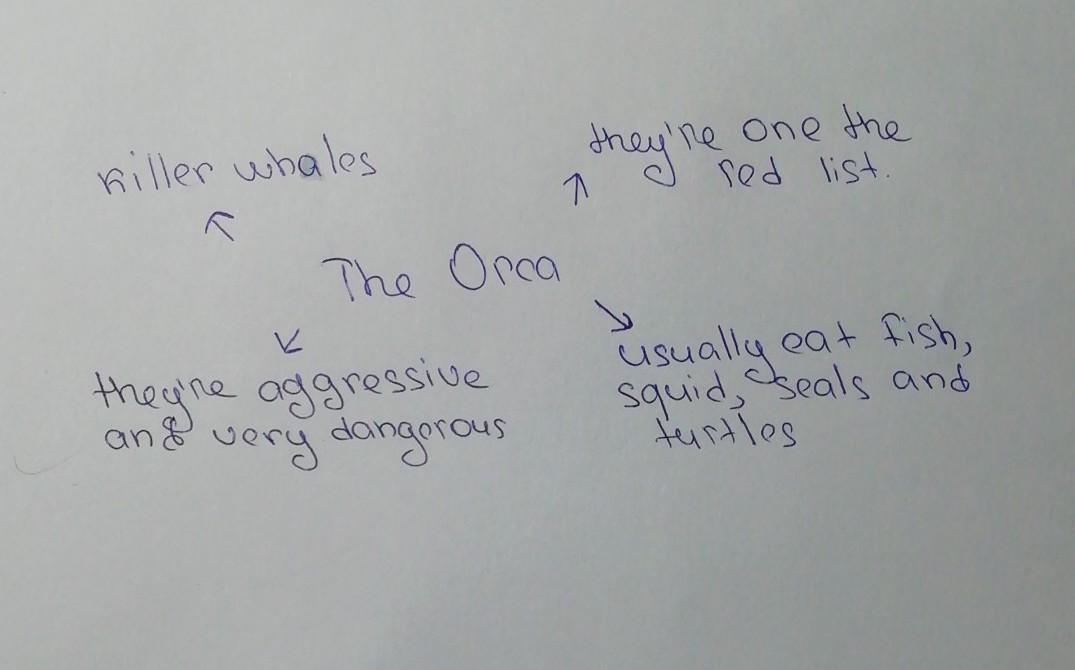 killer whales
they're one the
red list.
The Orca
they're aggressive
and very dangerous
usually eat fish,
squid, seals and
turtles